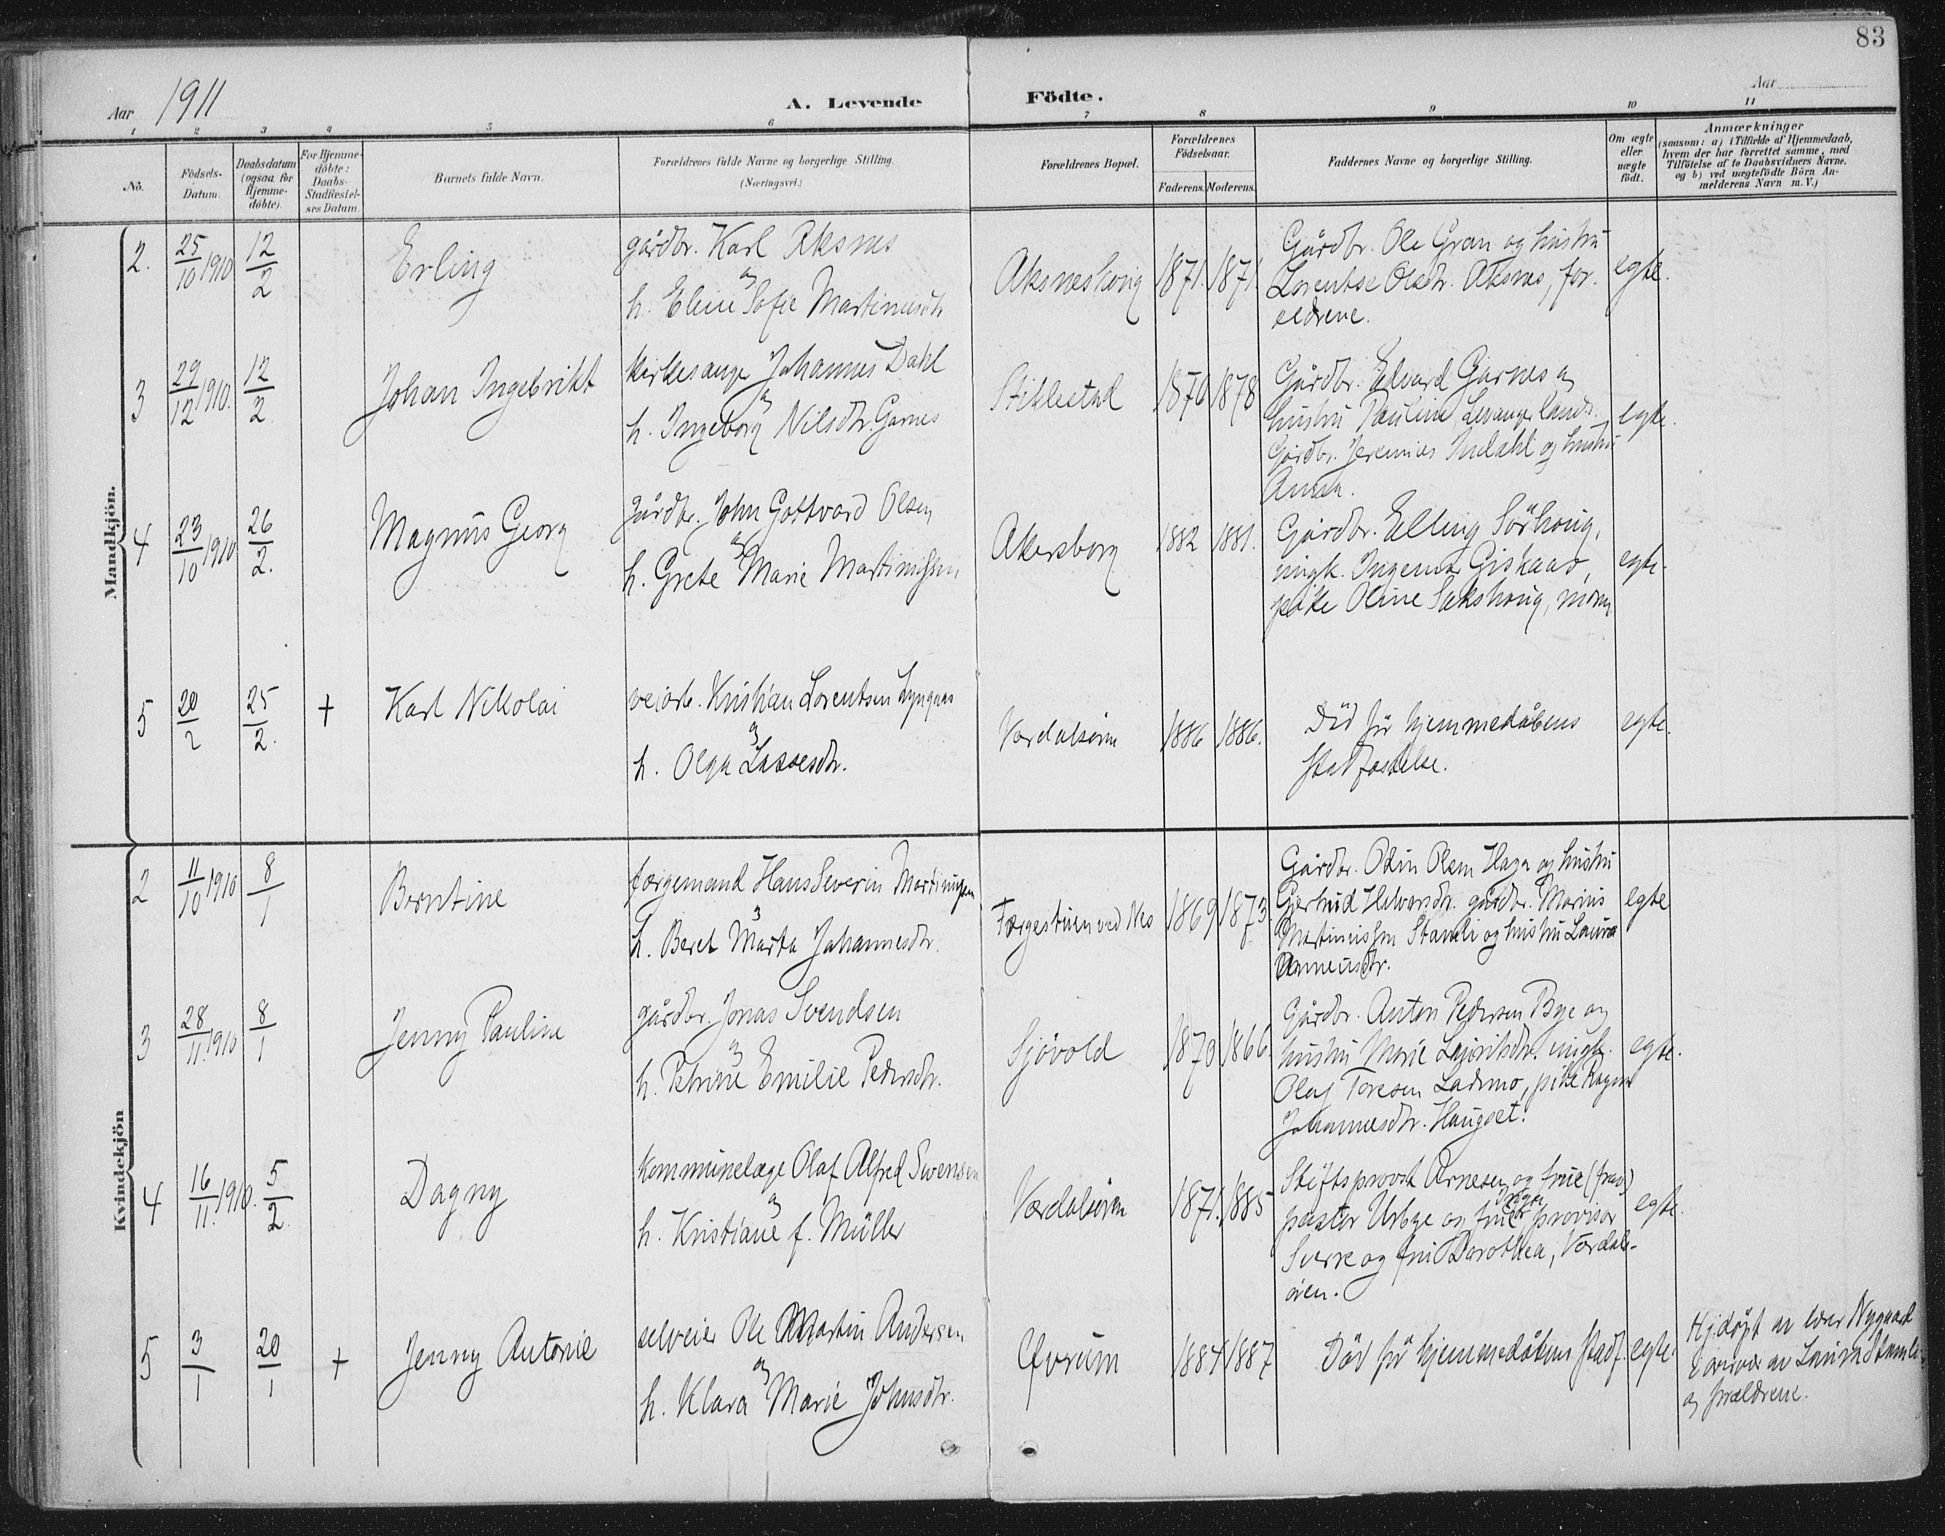 83
Aar 1911
A. Levende Födte.
Aar
1 2 3 4 5 6 7 8 9 10 11
No.
Födsels-Datum.
Daabsdatum (ogsaa for Hjemme-döbte).
For Hjemme-döbte: Daabs-Stadfæstel-ses Datum
Barnets fulde Navn.
Forældrenes fulde Navne og borgerlige Stilling.
(Næringsvei.)
Forældrenes Bopæl.
Forældrenes Födselsaar.
Faderens. Moderens.
Faddernes Navne og borgerlige Stilling.
Om ægte eller uægte födt.
Anmærkninger
(saasom: a) i Tilfælde af Hjemmedaab,
hvem der har forrettet samme, med
Tilföielse af to Daabsvidners Navne.
og b) ved uægtefödte Börn An-
melderens Navn m. V.)
Mandkjön.
2. 25/10 1910 12/2 Erling
gårdbr. Karl Aksnes
og
h. Eline Sofie Martinusdtr
Aksneshoug 1871. 1871.
Gårdbr. Ole Gran og hustru
Lorentse Olsdtr. Aksnes, for-
eldrene.
egte.
3 29/12 1910. 12/2 Johan Ingebrikt
kirkesanger Johannes Dahl
og
h. Ingeborg Nilsdtr. Garnes
Stiklestad 1876 1878
Gårdbr. Edvard Garnes og
hustru Pauline, Levanger lands.
Gårdbr. Jeremias Indahl og hustru
Anna.
egte.
4 23/10 1910 26/2. Magnus Georg
gårdbr. John Gottvard Olsen
og
h. Grete Marie Martinussen
Akersborg 1882 1881.
Gårdbr. Elling Sörhoug,
ungk. Ingemar Giskaas,
pike Oline Sakshoug, moren
egte.
5 20/2 25/2. + Karl Nikolai
veiarb. Kristian Lorentsen Lyngaas
og
h. Olga Lassesdtr.
Værdalsören 1886 1886.
Död för hjemmedåbens
stadfæstelse.
egte.
Kvindekjön
2 11/10 1910 8/1 Berntine
færgemand Hans Severin Martinussen
og
h. Beret Marta Johannesdtr.
Færgestuen ved Nes 1869 1873
Gårdbr. Odin Olsen Haga og hustru
Gjertrud Halvorsdtr. gårdbr. Marius
Martinussen Stamli og hustru Laura
Arneusdtr.
egte
3 28/11 1910 8/1 Jenny Pauline
gårdbr. Jonas Svendsen
og
h. Petrine Emilie Pedersdtr.
Sjövold 1870 1866.
Gårdbr. Anton Pedersen Bye og
hustru Marie Lauritsdtr. ungk.
Olaf Toresen Ladmo, pike Ragna
Johannesdtr. Haugset.
egte.
4 16/11. 1910. 5/2. Dagny
kommunelæge Olaf Alfred Svensen
og
h. Kristiane f. Müller
Værdalsören 1871. 1885
Stiftsprovst Arnesen og frue (frav.)
pastor Urbye og frue provisor
Sverre og frue Dorothea, Værdals-
ören.
egte.
5 3/1 20/1 + Jenny Antonie
selveier Ole Martin Andersen
og
h. Klara Marie Johnsdtr.
Efvrum 1884 1887
Död för hjemmedåbens stadf.
egte.
Hjdöpt av lærer Nygaard
i overvær av Laura Stamli
og forældrene.